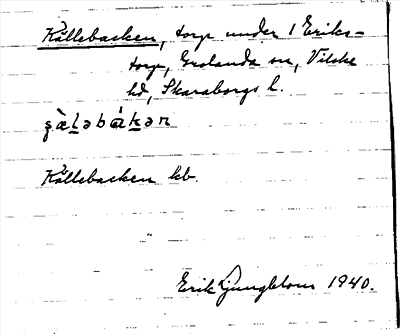 Källebacken, torp under 1 Eriks-
torp, Grolanda sn, Vilske
hd, Skaraborgs l.
Källebacken kb.
Erik Ljungblom 1940.